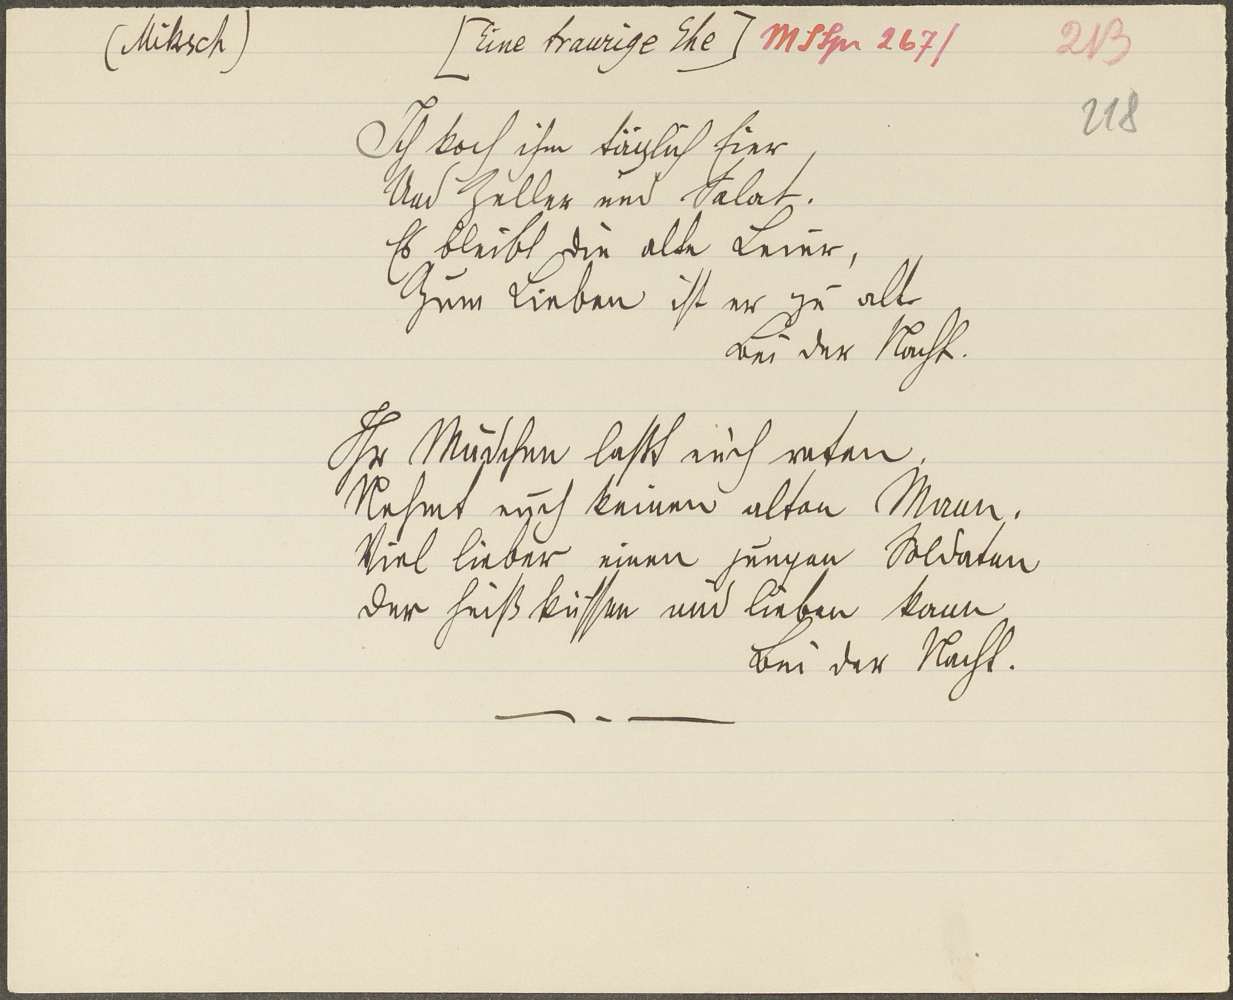 (Miksch) [Eine traurige Ehe] 267/ 213
218
Ich koch ihm täglich Eier,
Und Zeller und Salat.
Es bleibt die alte Leier,
Zum Lieben ist er zu alt
Bei der Nacht.
Ihr Mädchen laßt euch raten,
Nehmt euch keinen alten Mann.
Viel lieber einen jungen Soldaten
Der heiß küssen und lieben kann
Bei der Nacht.